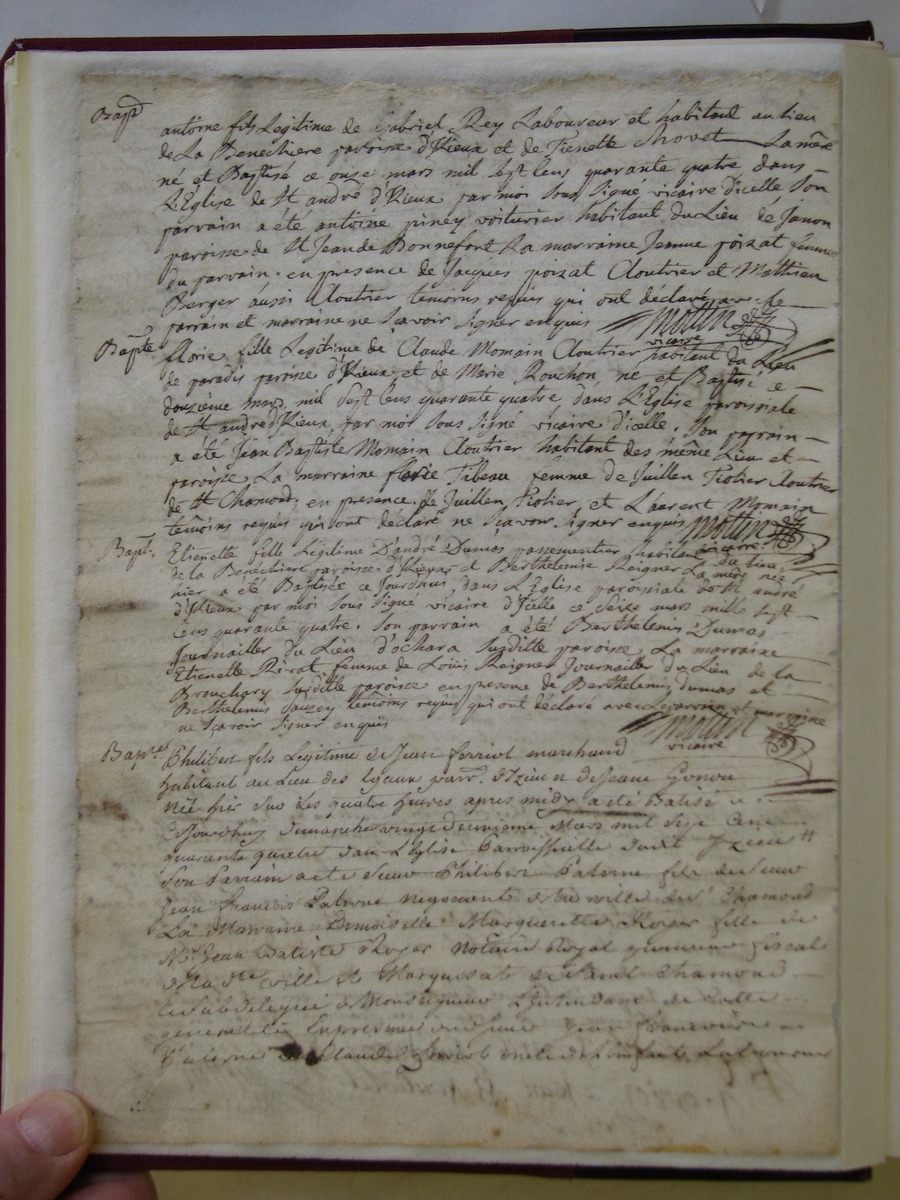 Bapt
antoine fils Legitime de Gabriel Rey Laboureur et habitant au lieu
de La Benechiere paroisse d'Izieux et de Tienette Chovet La mere
né et Baptisé ce onze mars mil sept cens quarante quatre dans
L'Eglise de St andré d'Izieux par moi sous signé vicaire d'icelle Son
parrain a été antoine piney voiturier habitant du Lieu de Janon
paroisse de St Jean de Bonnefont La marraine Jemme poizat femme
du parrain. en presence de Jacques poizat Cloutrier et Mathieu
Berger aussi Cloutrier temoins requis qui ont déclaré avec le
parrain et marraine ne scavoir signer enquis Mottin
vicaire
Bapte
florie fille Legitime de Claude Momain Cloutrier habitant du Lieu
de paradis paroisse d'Izieux et de Marie Rouchon, né et Baptisé ce
douzième mars mil sept cens quarante quatre, dans L'Eglise paroissiale
de St andré d'Izieux, par moi sous signé vicaire d'icelle. Son parrain
a été Jean Baptiste Momain Cloutrier habitant des même Lieu et
paroisse La marraine florie Tabeau femme de Juillen Fiolier Cloutrier
de St Chamond, en presence de Juillen Fiolier, et Laurent Momain
temoins requis qui ont déclaré ne scavoir signer enquis Mottin
vicaire
Bapt.
Etienette fille Légitime D'andré Dumas passementier habitant du lieu
de la Benechiere paroisse d'Izieux et Berthelemie Reigner La mère née
hier a été Baptisée ce Jourdhui, dans L'Eglise paroissiale de St andré
d'Izieux par moi sous signé vicaire d'Icelle ce seize mars mille sept
cens quarante quatre. Son parrain a été Berthelemis Dumas
Journailler du Lieu d'ochara susditte paroisse La marraine
Etienette Rivat femme de Louis Reigner Journailler du Lieu de la
Brouchary susditte paroisse en presence de Berthelemis dumas et
Berthelemis Souzey temoins requis qui ont déclaré avec Le parrain et marraine
ne scavoir signer enquis Mottin
vicaire
Bapt
Philibert fils Legitime de Jean ferriol marchand
habitant au Lieu des parr. d'Izieu et de Jeane Gonon
Né hier sur les quatre heures apres midy a été Batisé
Jourdhuy Dimanche vingt deuxieme Mars mil sept Cent
quarante quatre dan L'Eglise Parroissielle dudit Izieu
Son Parrain a ete Sieur Philibert Palerne fils de Sieur
Jean François Palerne negociant de la ville de St Chamond
La Marraine Demoiselle Marguerite Royer fille de
Mr Jean Batiste Royer Notaire Royal procureur fiscal
de la dte ville et Marquisat de Saint Chamond
et Subdelegué de Monseigneur L'Intendant de cette
generalité En presence de Sieur Jean François
Palerne et Claude ferriol oncle de L'enfant Laboureur